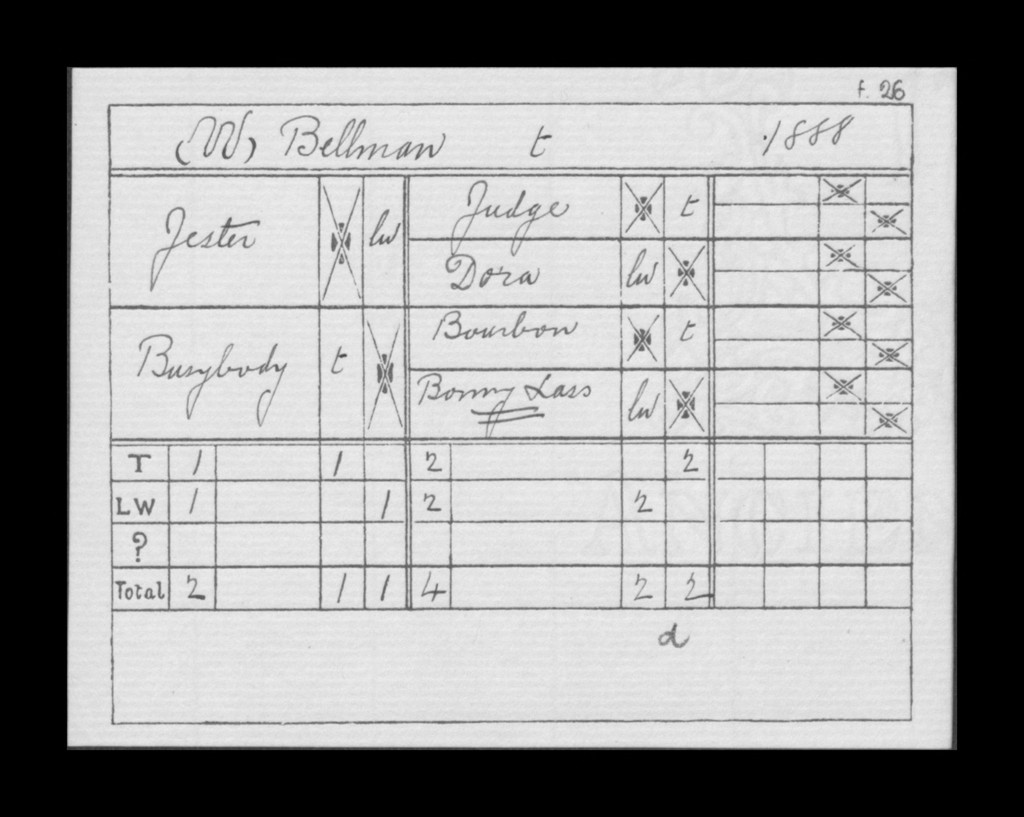 f. 26
(W) Bellman t 1888
Jester lw Judge t
Dora lw
Busybody t Bourbon t
Bonny Lass lw
T 1 1 2 2
LW 1 1 2 2
?
Total 2 1 1 4 2 2
d